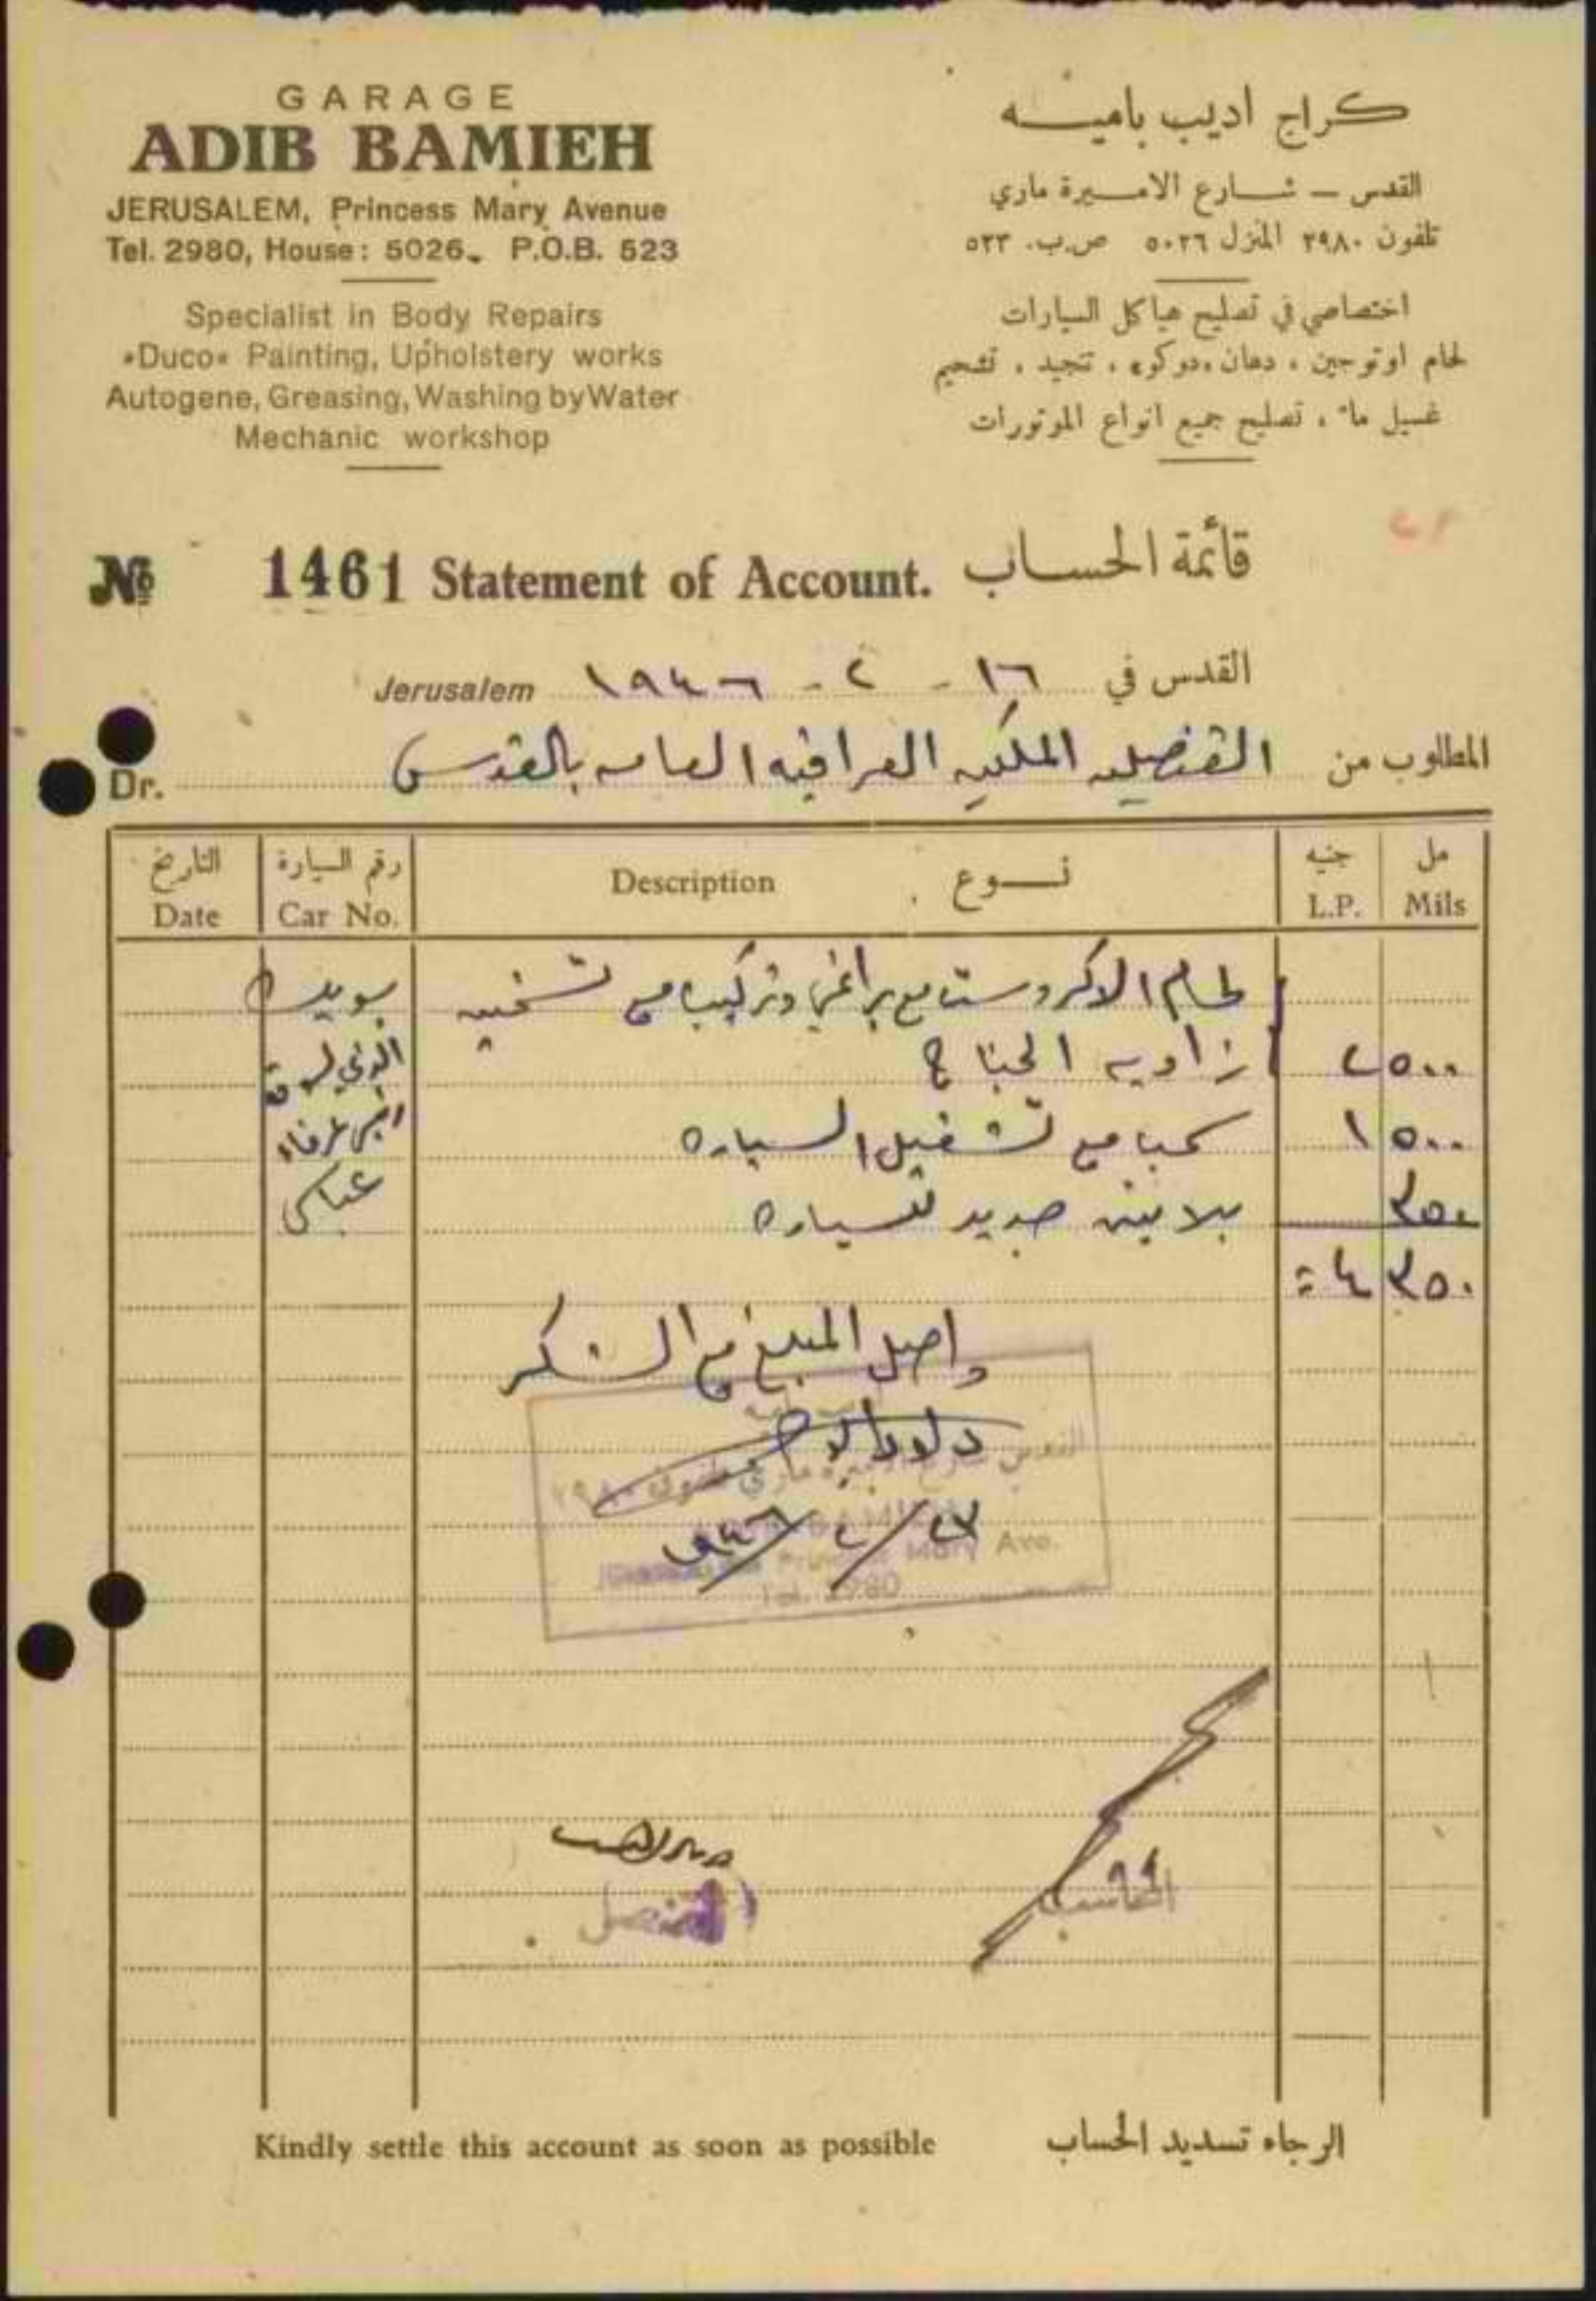 GARAGE
ADIB BAMIEH
JERUSALEM, Princess Mary Avenue
Tel. 2980, House: 5026. P.O.B. 523
Specialist in Body Repairs
«Duco» Painting, Upholstery works
Autogene, Greasing, Washing by Water
Mechanic workshop
كراج اديب باميه
القدس – شارع الاميرة ماري
تلفون ٢٩٨٠ المنزل ٥٠٢٦ ص.ب. ٥٢٣
اختصاصي في تصليح هياكل السيارات
لحام اوتوجين ، دهان «دوكو» ، تنجيد ، تشحيم
غسيل ماء ، تصليح جميع انواع الموتورات
№ 1461 Statement of Account. قائمة الحساب
Jerusalem ١٩٤٦ - ٢ - ١٦ القدس في
المطلوب من القنصليه الملكيه العراقيه العامه بالقدس Dr.
التاريخ رقم السيارة نوع جنيه مل
Date Car No. Description L.P. Mils
لحام الاكزوست مع براغي وتركيب مع تسخيه
زاويه الجناح ٢ ٥٠٠
سحب مع تشغيل السياره ١ ٥٠٠
بلاتين جديد للسياره ٣٥٠
٤ ٣٥٠
واصل المبلغ مع الشكر
٢٧ / ٢ / ١٩٤٦
Mary Ave.
المحاسب
القنصل
Kindly settle this account as soon as possible الرجاء تسديد الحساب